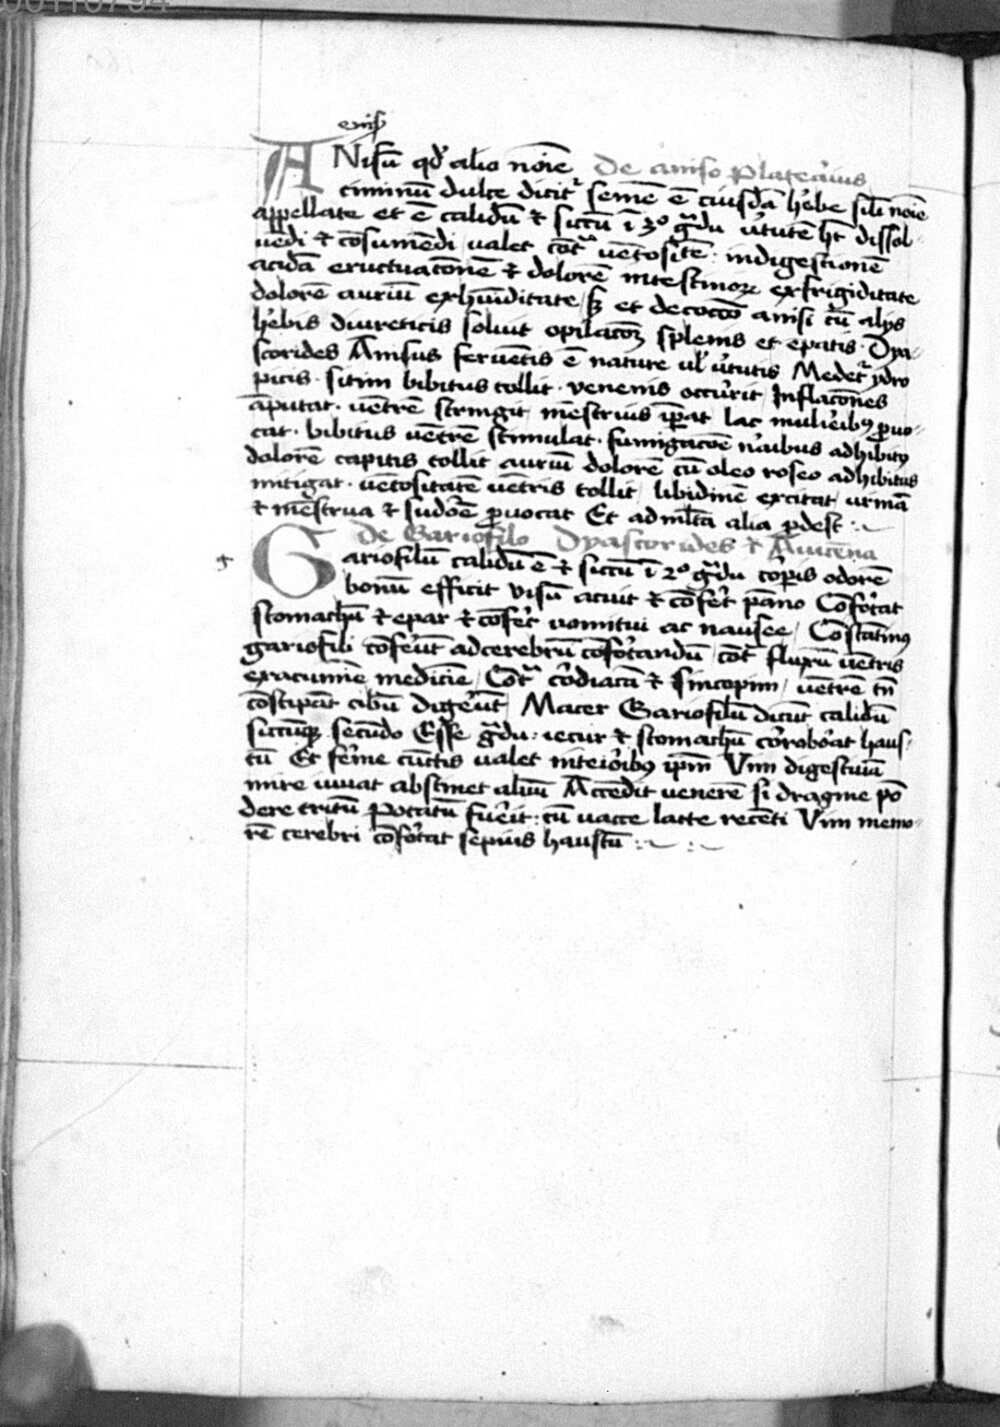 enis
ANisū qd' alio noīe De aniso Platearius
ciminū dulce dicit᷑ semē ē cuiusdā h'be sil'i noīe
appellate et ē calidū ⁊ siccū ī 3º g̃du v'tutē hꝫ dissol
uēdi ⁊ cōsumēdi valet cōt͛ uētositētē · indigestionē
acidā eructuacōnē ⁊ dolorē intestinoꝝ ex frigiditate
dolorē auriū ex hūiditate / sꝫ et decoctō anisi cū alijs
h'bis diureticis soluit opilacōꝫ splenis et epatis · Dya
scorides Anisus feruētis ē nature ul' v'tutis Medet᷑ ydro
picis · sitim bibitus tollit · venenis occ'urit Inflacōnes
āputat · uētrē stringit mēstruis īꝑat lac mulie'ibꝰ ꝓuo
cat · bibitus uētrē stimulat · fumigacōe n'aibus adhibitꝰ
dolorē capitis tollit auriū dolorē cū oleo roseo adhibitus
mitigat · uētositatē uētris tollit / libidinē excitat urinā
⁊ mēstrua ⁊ sudo'ē ꝓuocat Et ad ml'ta alia ꝓdest
De Gariofilo Dyascorides ⁊ Auicēna
g Gariofilū calidū ē ⁊ siccū ī 2º g̃du co'ꝑis odorē
bonū efficit visū acuit ⁊ cōfe't pāno Cōfo'tat
stomachū ⁊ epar ⁊ cōfe't uomitui ac nausee / Cōstātinꝰ
gariofili cōfe'ūt ad cerebrū cōfo'tandū / cōt͛ fluxū uētris
ex acumīe medicīe / Cōt͛ co'diacā ⁊ sincopim / uētrē tn̄
cōstipāt cibū dige'ūt / Macer Gariofilū dicūt calidū
siccūqꝫ secūdo Esse g̃du · iecur ⁊ stomachū co'robo'at haus
tū Et fe'me cūctis ualet inteio'ibꝰ ip̄m Vim digestiuā
mire iuuat abstinet aluū Accedit uenerē si dragme pō
dere tritū Potatū fue'it · cū uacce lacte recēti Vim memo
rē cerebri cōfo'tat sepius haustū